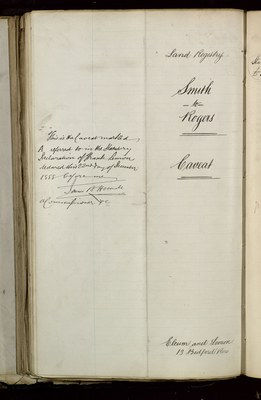 This is the Caveat marked
B referred to in the Statutory
Declaration of Frank
declared this day of
1888 Before me
A Commissioner &c
Land Registry
Smith
to
Rogers
Caveat
and
13 Bedford Row